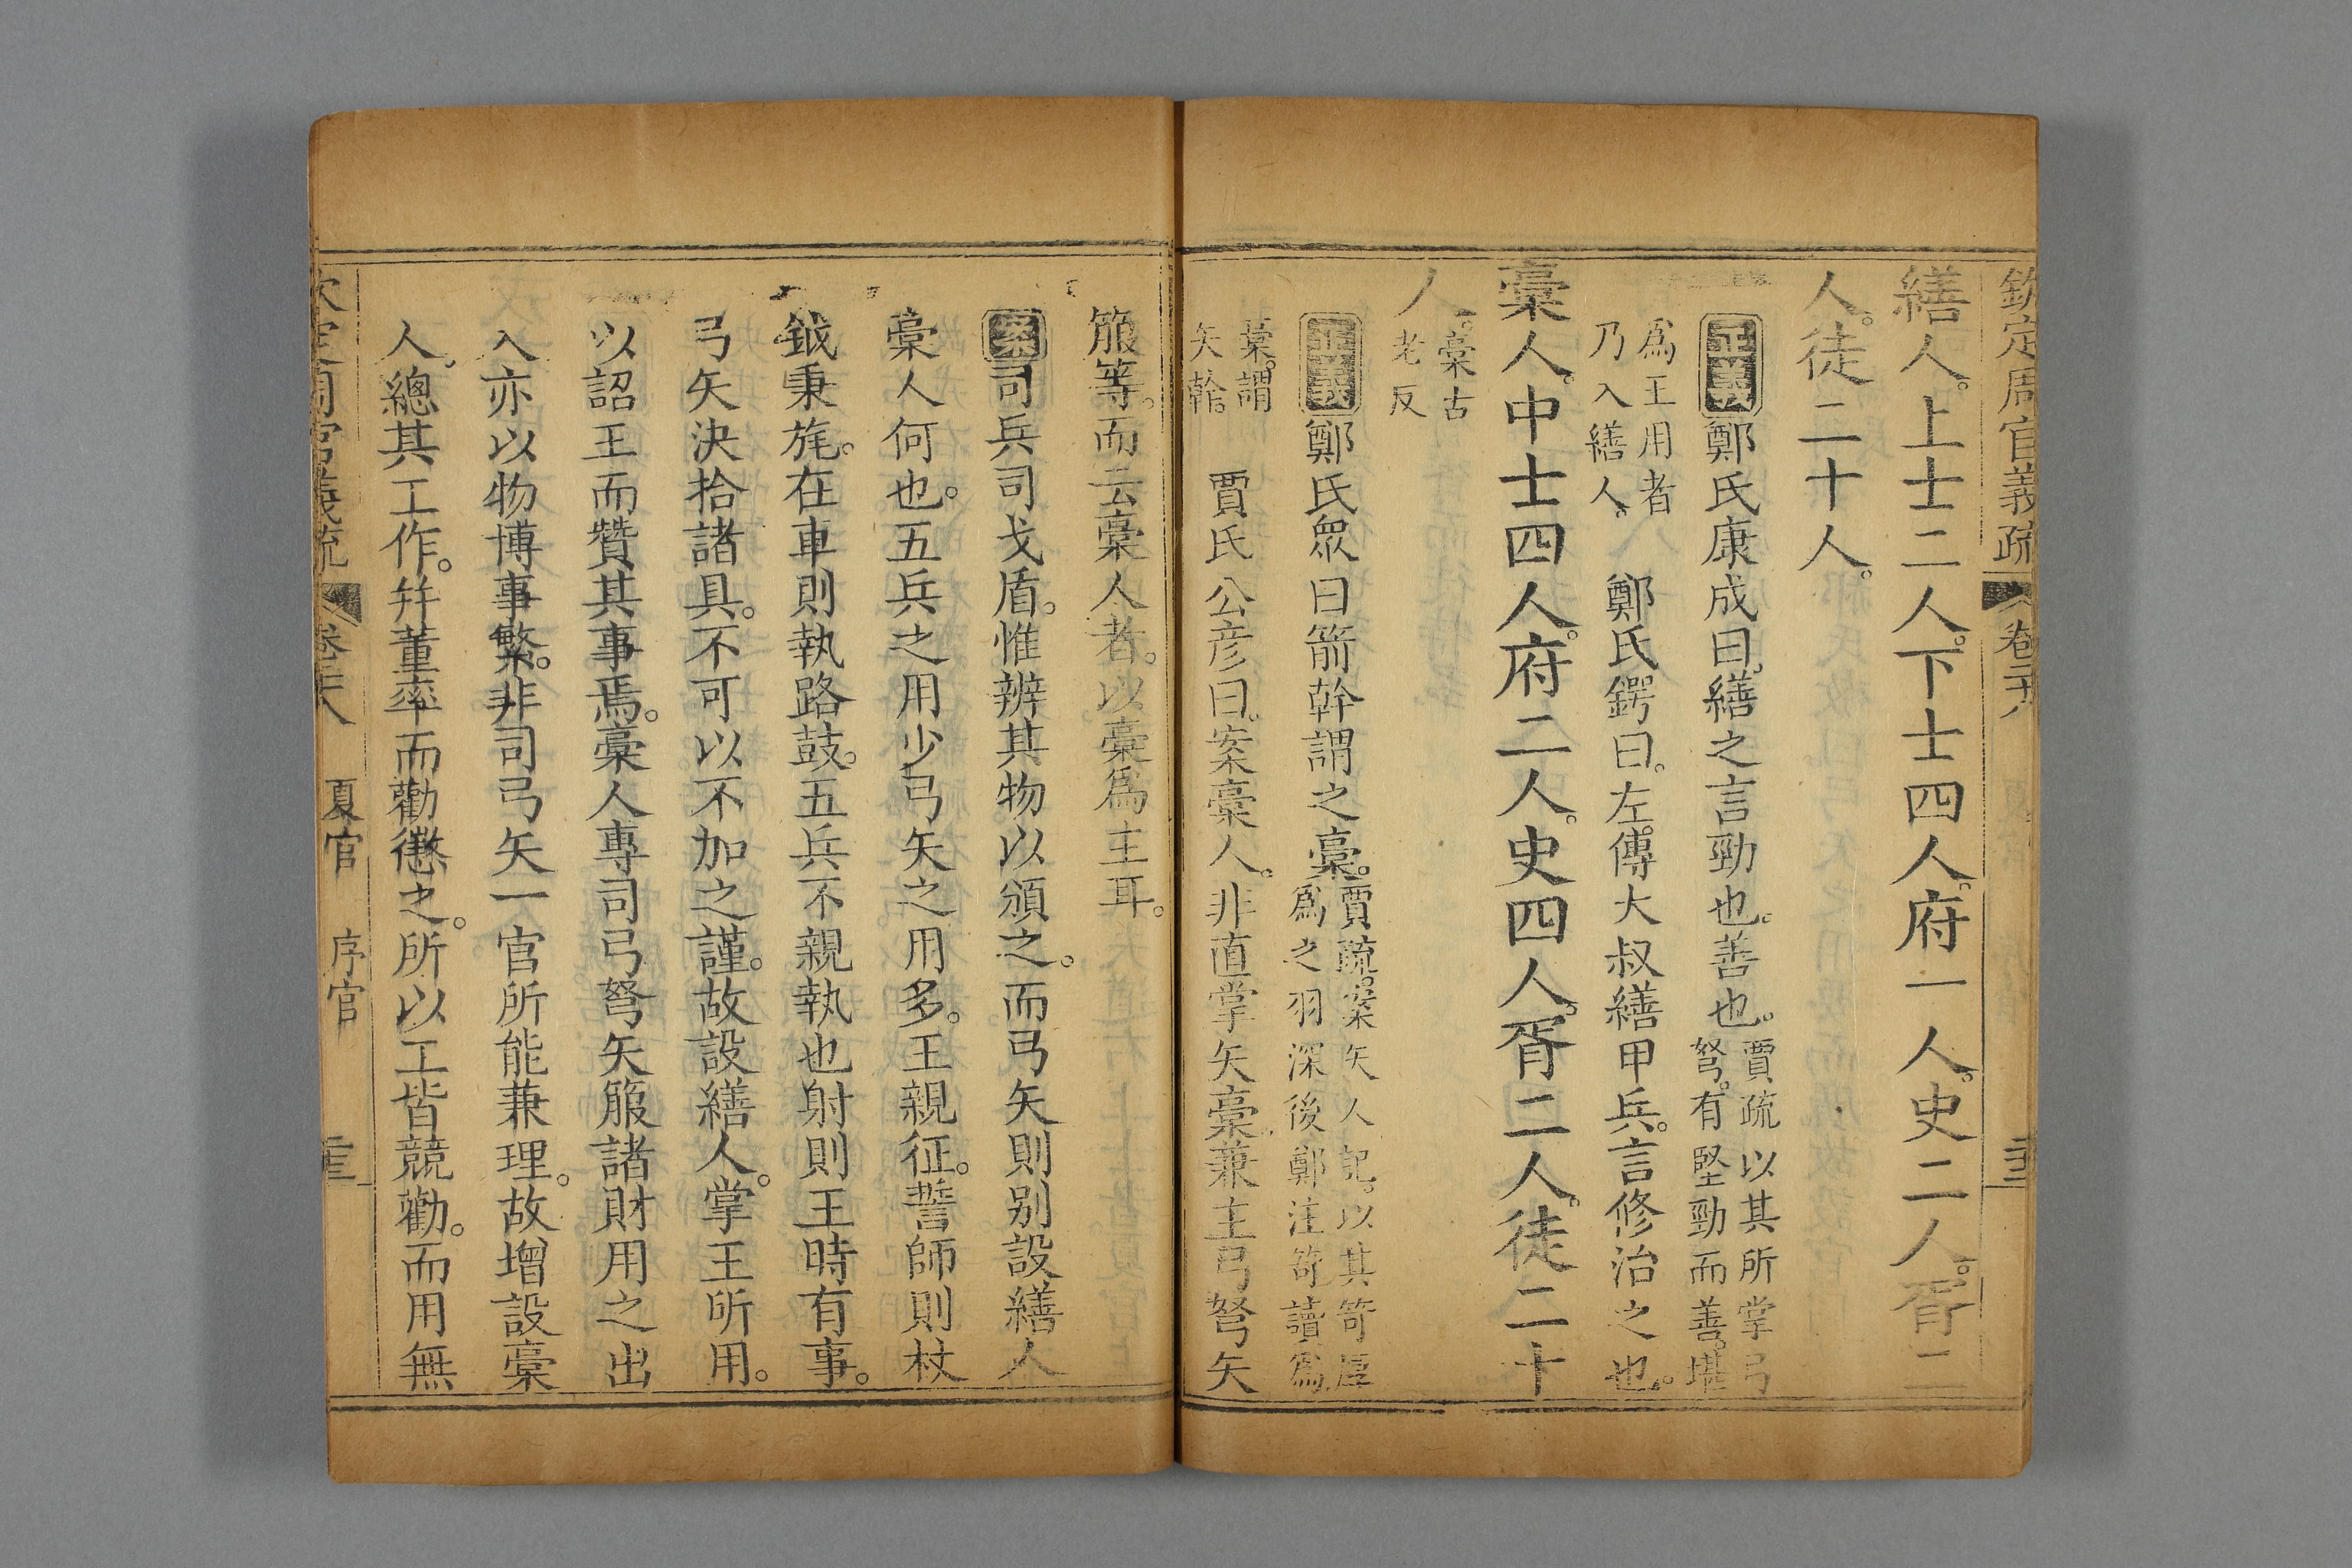 欽定周官義疏 卷二十八
繕人。上士二人。下士四人。府一人。史二人。胥二
人。徒二十人。
正義鄭氏康成曰。繕之言勁也。善也。賈疏以其所掌弓
弩。有堅勁而善。堪
爲王用者
乃入繕人。
鄭氏鍔曰。左傳大叔繕甲兵。言修治之也。
槀人。中士四人。府二人。史四人。胥二人。徒二十
人。槀古
老反
正義鄭氏眾曰箭幹謂之槀。賈疏。案矢人記。以其笴厚
爲之羽深後鄭注笴讀爲
槀。謂
矢幹。
賈氏公彦曰。案槀人。非直掌矢槀兼主弓弩矢
箙等。而云槀人者。以槀爲主耳。
案司兵司戈盾。惟辨其物以頒之。而弓矢則别設繕人
槀人何也。五兵之用少弓矢之用多。王親征。誓師則杖
鉞秉旄。在車則執路鼓。五兵不親執也射則王時有事。
弓矢決拾諸具。不可以不加之謹。故設繕人。掌王所用。
以詔王而贊其事焉。槀人專司弓弩矢箙諸財用之出
入亦以物博事繁。非司弓矢一官所能兼理。故增設槀
人。總其工作。并董率而勸懲之。所以工皆競勸。而用無
欽定周官義疏 卷二十八 夏官 序官